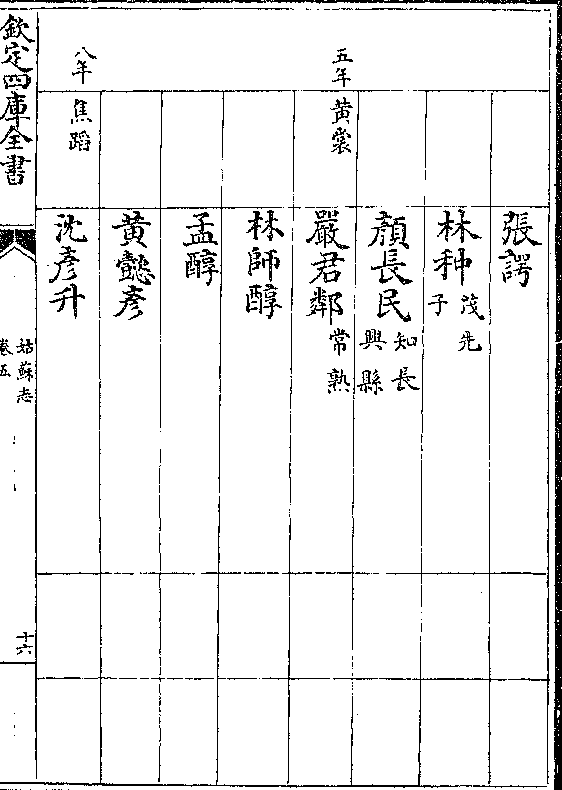 張諤
林种 茂先
子
顏長民 知長
興縣
五年 黃裳 嚴君鄰 常熟
林師醇
孟醇
黃懿彥
八年 焦蹈 沈彥升
欽定四庫全書
姑蘇志
卷五
十六